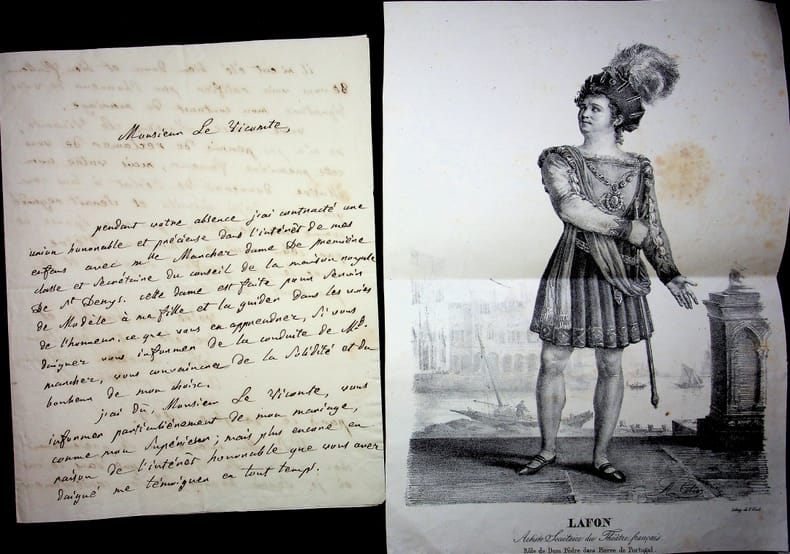 Monsieur Le Vicomte,
pendant votre absence j'ai contracté une
union honorable et précieuse dans l'intérêt de mes
enfans avec Mlle Mancher dame De première
classe et Secrétaire du conseil de la maison royale
De St Denys. cette dame est faite pour Servir
de Modèle à ma fille et la guider dans les voies
de l'honneur. ce que vous en apprendrez, Si vous
daignez vous informer de la conduite de Md.
mancher, vous convaincra de la Solidité et du
bonheur de mon choix.
j'ai dû, Monsieur Le Vicomte, vous
informer particulièrement de mon mariage,
comme mon Supérieur; mais plus encore en
raison de l'intérêt honorable que vous avez
daigné me témoigner en tout temps.
LAFON
Artiste Sociétaire du Théâtre français
Rôle de Dom Pèdre dans Pierre de Portugal.